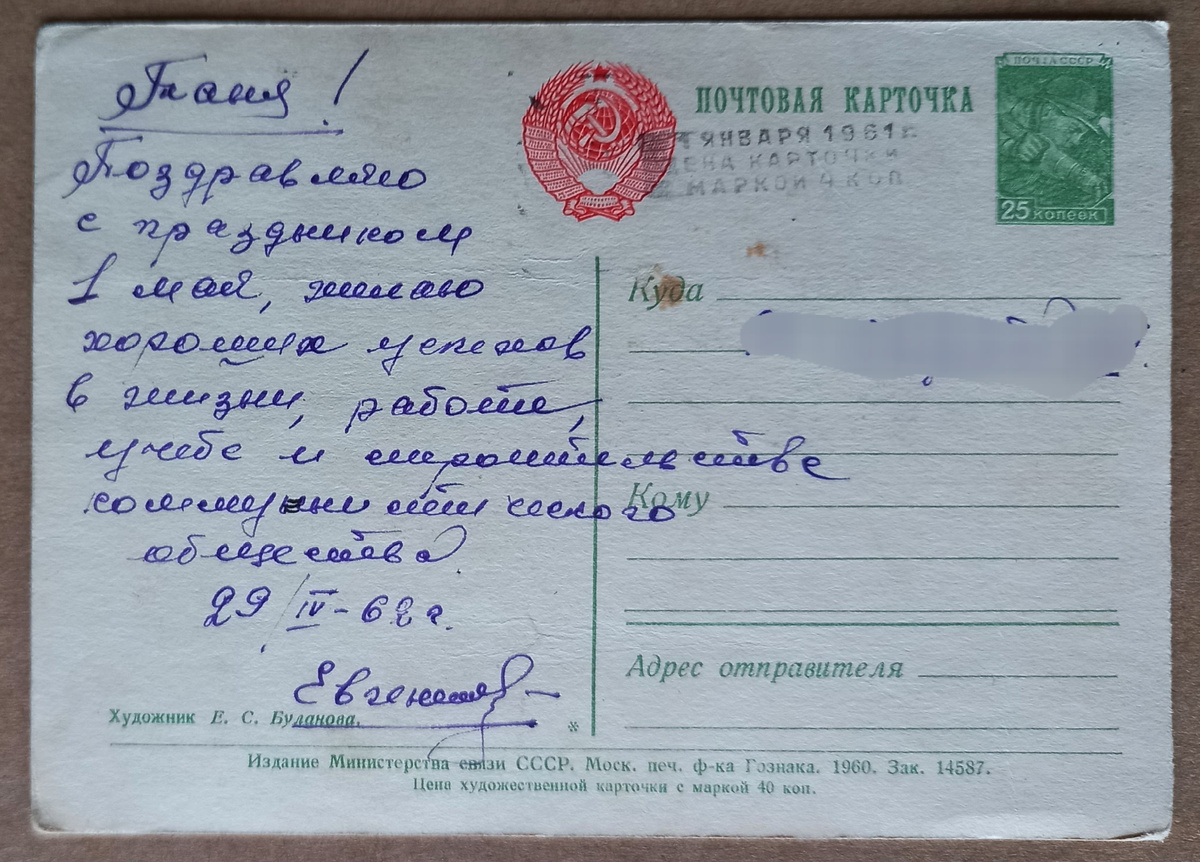 Таня!
Поздравляю
с праздником
1 мая, желаю
хороших успехов
в жизни, работе,
учебе и строительстве
коммунистического
общества.
29/IV-62 г.
Евгения
ПОЧТОВАЯ КАРТОЧКА
1 ЯНВАРЯ 1961 г.
ЦЕНА КАРТОЧКИ
С МАРКОЙ 4 КОП
ПОЧТА СССР
25 КОПЕЕК
Куда
Кому
Адрес отправителя
Художник Е. С. Буданова.
*
Издание Министерства связи СССР. Моск. печ. ф-ка Гознака. 1960. Зак. 14587.
Цена художественной карточки с маркой 40 коп.